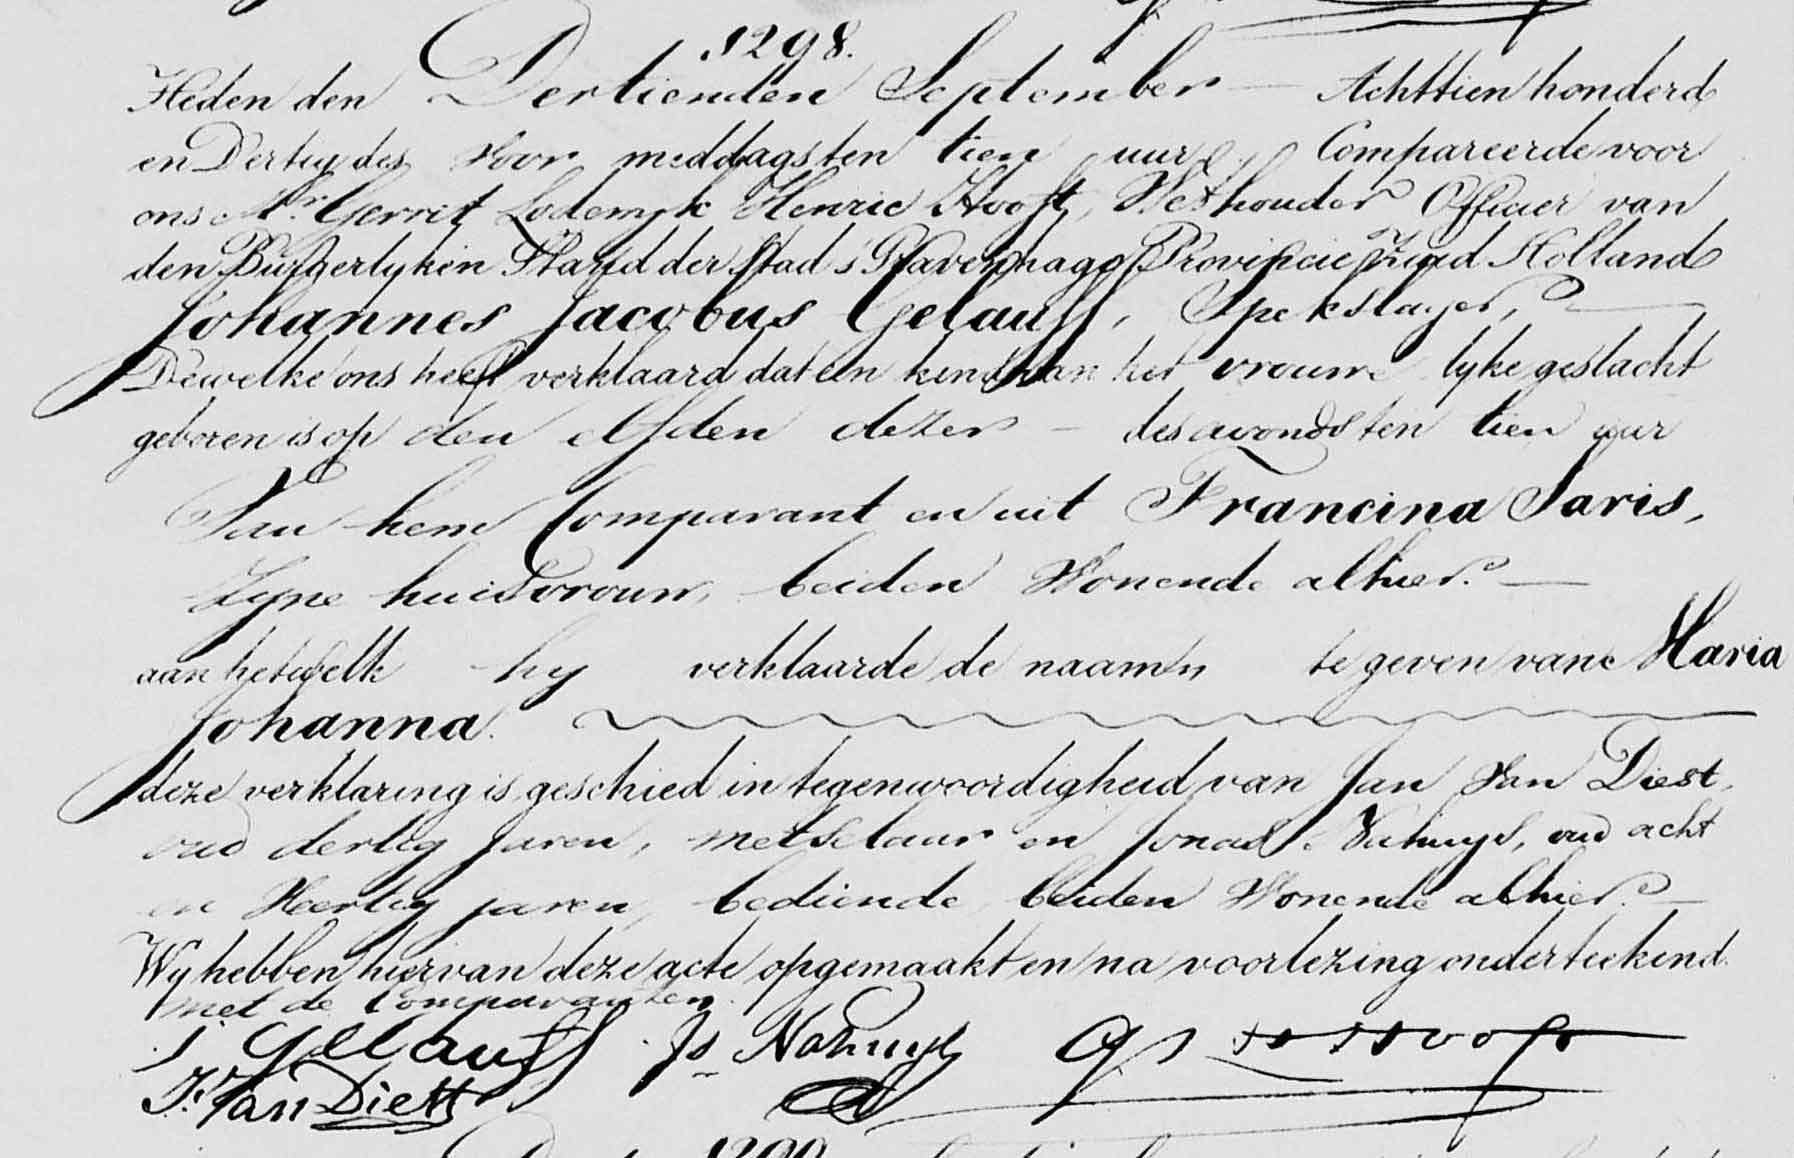 1298.
Heden den Dertienden September – Achttien honderd
en Dertig des voor middags ten tien uur, Compareerde voor
ons Mr. Gerrit Lodewyk Henric Hooft, Wethouder Officier van
den Burgerlyken Stand der Stad 's Gravenhage, Provincie Zuid Holland
Johannes Jacobus Gelauff, Spekslager, —
Dewelke ons heeft verklaard dat een kind van het vrouwe lyke geslacht
geboren is op den elfden dezer – des avonds ten tien uur
Van hem Comparant en uit Francina Saris,
Zyne huisvrouw, beiden Wonende alhier. —
aan hetwelk hy verklaarde de naamen te geven van Maria
Johanna.
deze verklaring is geschied in tegenwoordigheid van Jan Van Diest,
oud dertig Jaren, metselaar en Jonas Nahuys, oud acht
en Veertig jaren, bediende, beiden Wonende alhier. —
Wy hebben hiervan deze acte opgemaakt en na voorlezing onderteekend
met de Comparanten.
J Gelauff Js Nahuys G Hooft
J. Van Diest
1299